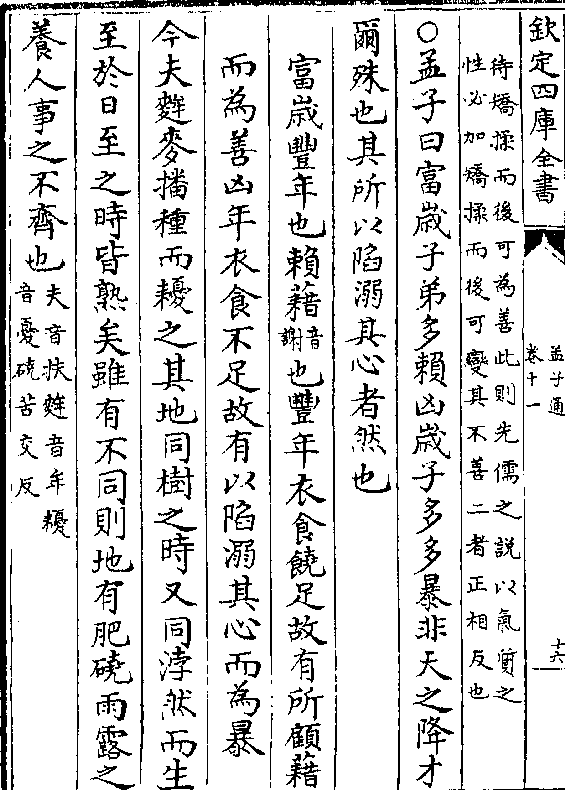 欽定四庫全書
孟子通
卷十一
十六
待矯揉而後可為善此則先儒之說以氣質之
性必加矯揉而後可變其不善二者正相反也
○孟子曰富歲子弟多賴凶歲子多多暴非天之降才
爾殊也其所以陷溺其心者然也
富歲豐年也賴藉音謝也豐年衣食饒足故有所顧藉
而為善凶年衣食不足故有以陷溺其心而為暴
今夫麰麥播種而耰之其地同樹之時又同浡然而生
至於日至之時皆熟矣雖有不同則地有肥磽雨露之
養人事之不齊也夫音扶麰音牟耰
音憂磽苦交反